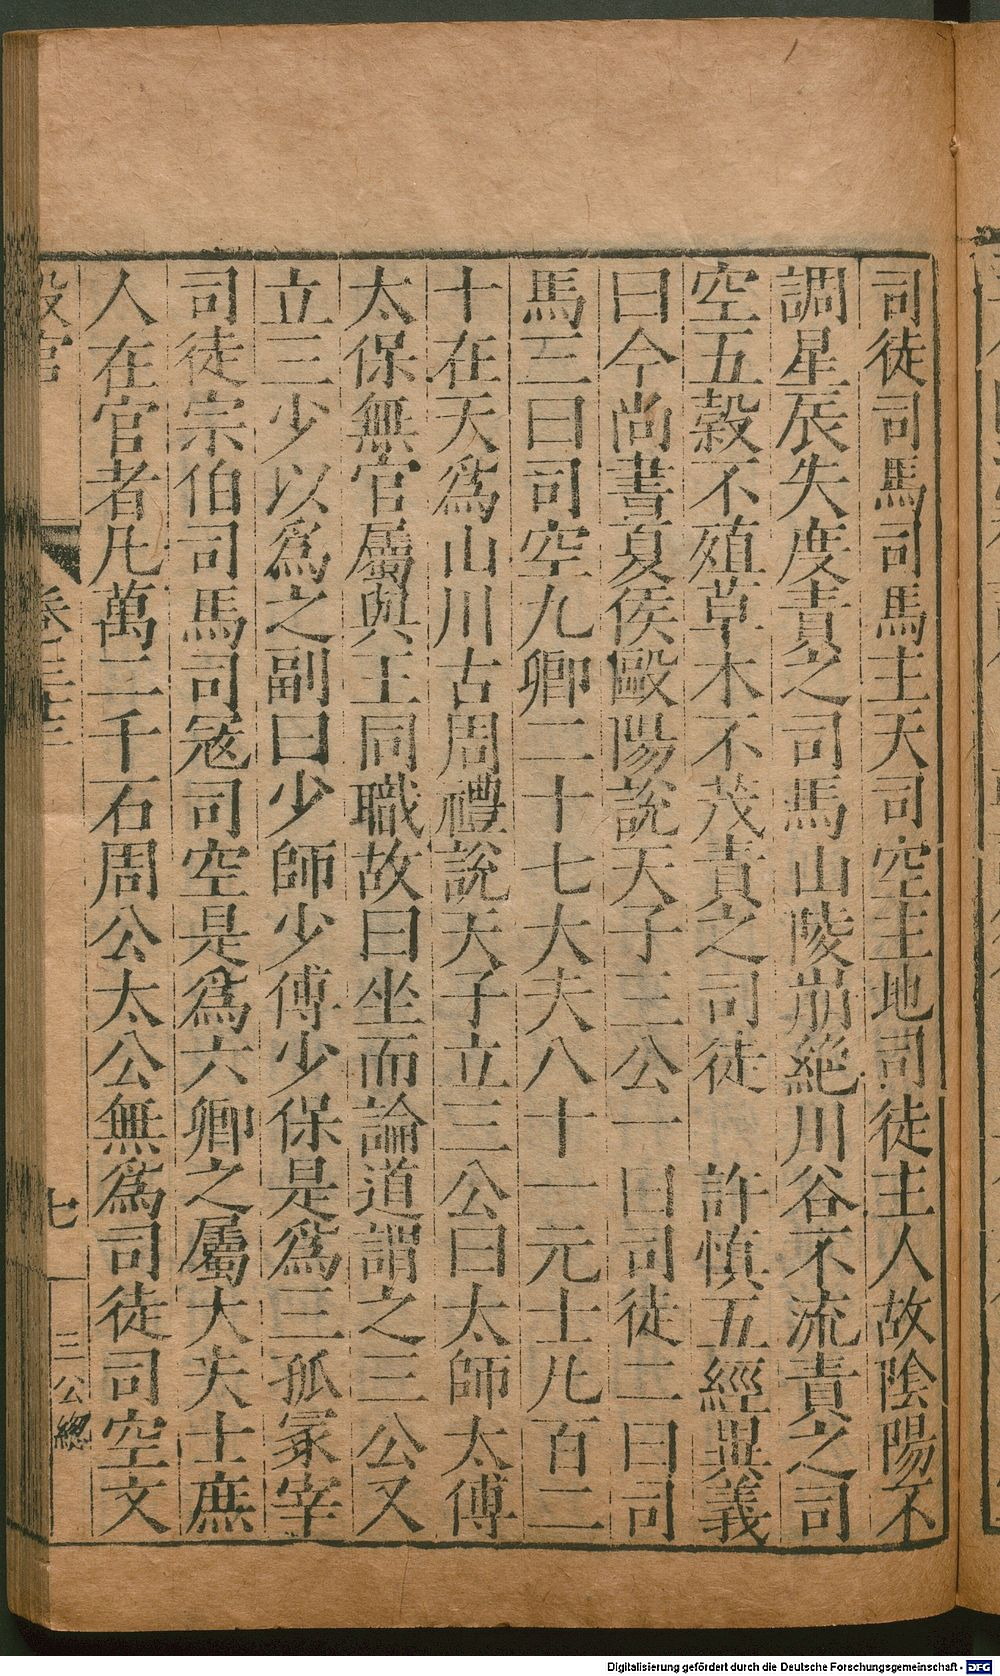 司徒司馬司馬主天司空主地司徒主人故陰陽不
調星辰失度責之司馬山陵崩絶川谷不流責之司
空五穀不殖草木不茂責之司徒 許慎五經異義
曰今尚書夏侯歐陽說天子三公一曰司徒二曰司
馬三曰司空九卿二十七大夫八十一元士凡百二
十在天爲山川古周禮說天子立三公曰太師太傅
太保無官屬與王同職故曰坐而論道謂之三公又
立三少以爲之副曰少師少傅少保是爲三孤冢宰
司徒宗伯司馬司寇司空是爲六卿之屬大夫士庶
人在官者凡萬二千石周公太公無爲司徒司空文
設官
卷
七
三公總
Digitalisierung gefördert durch die Deutsche Forschungsgemeinschaft - DFG